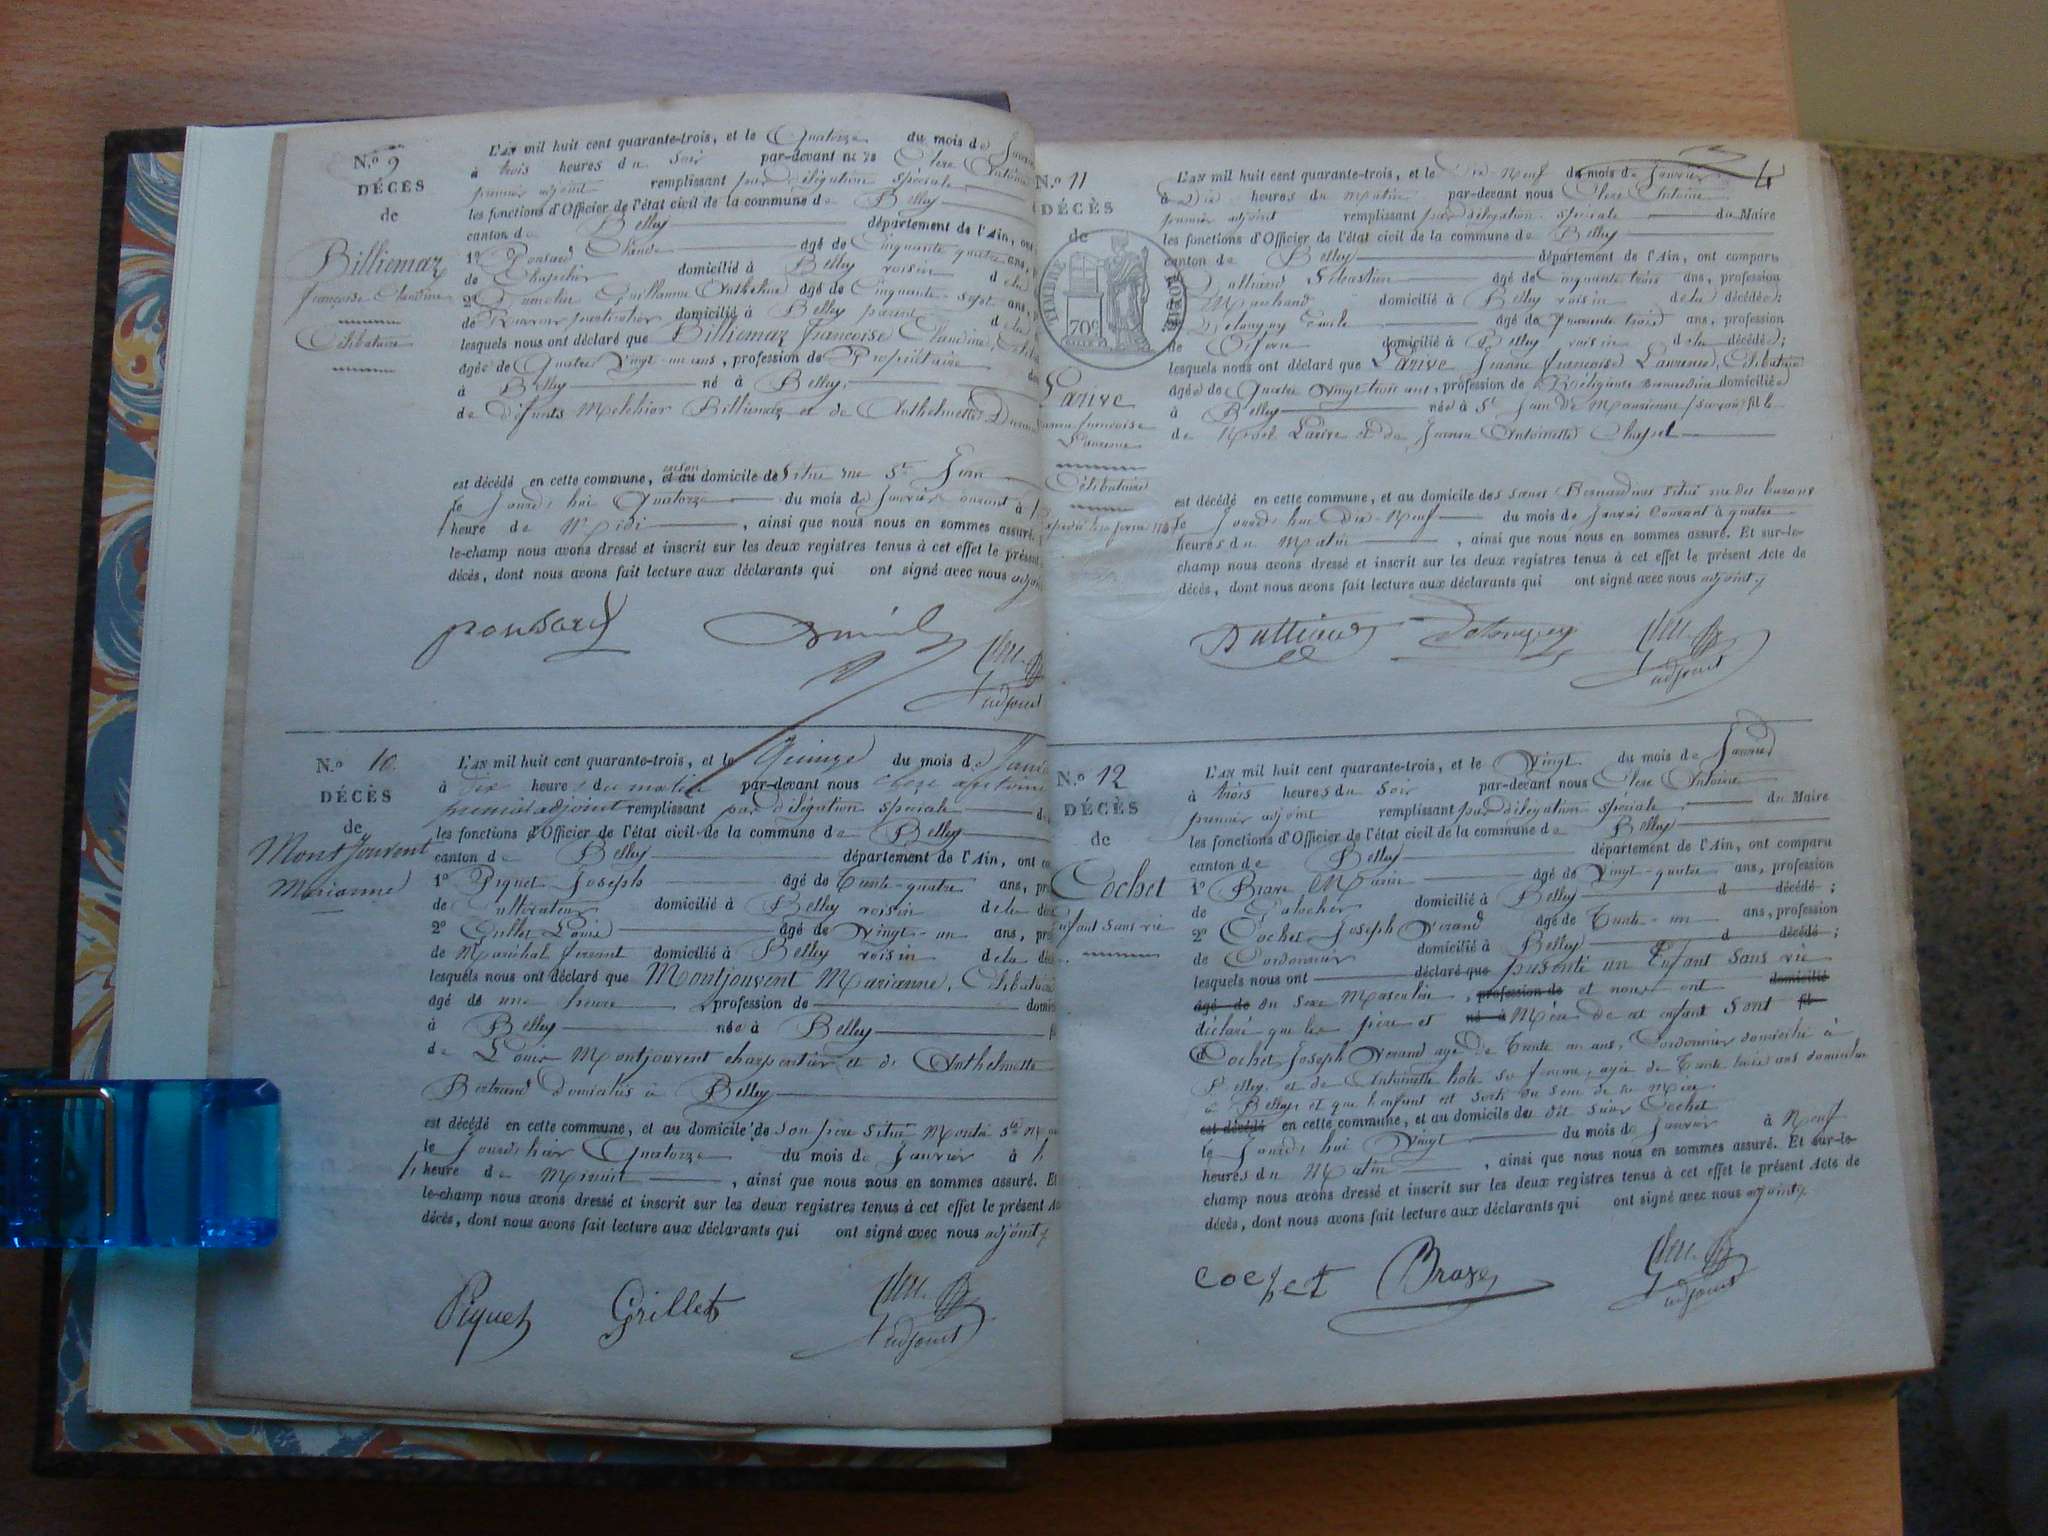 N.º 9
DÉCÈS
de
Billiemaz
françoise Claudine
Célibataire
L'AN mil huit cent quarante-trois, et le Quatorze du mois de
à trois heures du soir par-devant nous Clerc Antoine
premier adjoint remplissant par délégation spéciale
les fonctions d'Officier de l'état civil de la commune de Belley
canton de Belley département de l'Ain, ont
1º Ponsard Claude âgé de Cinquante quatre ans,
de Chapelier domicilié à Belley voisin de la
2º Guillaume Anthelme âgé de Cinquante-sept ans,
de particulier domicilié à Belley parent de la
lesquels nous ont déclaré que Billiemaz françoise Claudine,
âgée de Quatre Vingt-un ans, profession de Propriétaire
à Belley né à Belley,
de défunts Melchior Billiemaz et de Anthelmette
est décédé en cette commune, et au domicile de situé rue St Jean
le Jourd'hui Quatorze du mois de Janvier courant à
heure de Midi, ainsi que nous nous en sommes assuré.
le-champ nous avons dressé et inscrit sur les deux registres tenus à cet effet le présent
décès, dont nous avons fait lecture aux déclarants qui ont signé avec nous adjoint
ponsard
adjoint
N.º 10.
DÉCÈS
de
Montjouvent
Marianne
L'AN mil huit cent quarante-trois, et le Quinze du mois de
à dix heures du matin par-devant nous clerc antoine
premier adjoint remplissant par délégation spéciale
les fonctions d'Officier de l'état civil de la commune de Belley
canton de Belley département de l'Ain, ont
1º Piguet Joseph âgé de trente-quatre ans,
de Cultivateur domicilié à Belley voisin de la
2º Grillet Louis âgé de Vingt-un ans,
de Maréchal ferrant domicilié à Belley voisin de la
lesquels nous ont déclaré que Montjouvent Marianne, Célibataire
âgé de une heure, profession de
à Belley née à Belley
de Louis Montjouvent charpentier et de Anthelmette
Bertrand domiciliés à Belley
est décédé en cette commune, et au domicile de son père situé
le Jourd'hier Quatorze du mois de Janvier à
heure de Minuit, ainsi que nous nous en sommes assuré. Et
le-champ nous avons dressé et inscrit sur les deux registres tenus à cet effet le présent
décès, dont nous avons fait lecture aux déclarants qui ont signé avec nous adjoint
Piguet Grillet
adjoint
4
N.º 11
DÉCÈS
de
TIMBRE ROYAL
70c
Larive
Jeanne françoise
Laurence
Célibataire
L'AN mil huit cent quarante-trois, et le Dix Neuf du mois de Janvier
à Dix heures du Matin par-devant nous Clerc Antoine
premier adjoint remplissant par délégation spéciale du Maire
les fonctions d'Officier de l'état civil de la commune de Belley
canton de Belley département de l'Ain, ont comparu
Sébastien âgé de Cinquante trois ans, profession
Marchand domicilié à Belley voisin de la décédée;
âgé de Quarante trois ans, profession
de domicilié à Belley voisin de la décédée;
lesquels nous ont déclaré que Larive Jeanne françoise Laurence, Célibataire
âgée de Quatre Vingt trois ans, profession de Religieuse Bernardine domiciliée
à Belley née à St Jean de Maurienne (savoie) fil le
de Noël Larive et de Jeanne Antoinette
est décédé en cette commune, et au domicile des sœurs Bernardines situé rue des barons
le Jourd'hui Dix-Neuf du mois de Janvier Courant à quatre
heures du Matin, ainsi que nous nous en sommes assuré. Et sur-le-
champ nous avons dressé et inscrit sur les deux registres tenus à cet effet le présent Acte de
décès, dont nous avons fait lecture aux déclarants qui ont signé avec nous adjoint
adjoint
N.º 12
DÉCÈS
de
Cochet
enfant sans vie
L'AN mil huit cent quarante-trois, et le Vingt du mois de Janvier
à trois heures du Soir par-devant nous Clerc Antoine
premier adjoint remplissant par délégation spéciale du Maire
les fonctions d'Officier de l'état civil de la commune de Belley
canton de Belley département de l'Ain, ont comparu
1º Braze Marin âgé de Vingt-quatre ans, profession
de Galocher domicilié à Belley d décédé ;
2º Cochet Joseph Verand âgé de Trente-un ans, profession
de Cordonnier domicilié à Belley d décédé ;
lesquels nous ont déclaré que présenté un Enfant sans vie
âgé de du sexe Masculin, profession de et nous ont domicilié
déclaré que les père et né à Mère de cet enfant sont fil
Cochet Joseph Verand agé de trente un ans, Cordonnier domicilié à
Belley, et de Antoinette sa femme, agée de trente trois ans domiciliée
à Belley, et que l'enfant est sorti du sein de sa Mère
est décédé en cette commune, et au domicile du dit sieur Cochet
le Jourd'hui Vingt du mois de Janvier à Neuf
heures du Matin, ainsi que nous nous en sommes assuré. Et sur-le-
champ nous avons dressé et inscrit sur les deux registres tenus à cet effet le présent Acte de
décès, dont nous avons fait lecture aux déclarants qui ont signé avec nous adjoint
cochet Braze
adjoint